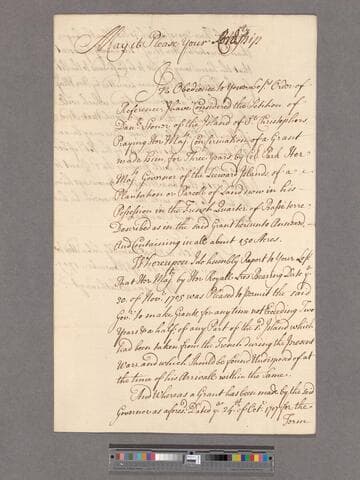 May it Please Your Lordship
In Obedience to Your Losps Order of
Reference, I have Considered the Petition of
of the Island of St. Christophers,
Praying Her Majts Confirmation of a Grant
made him for Three Years by Coll Park Her
Majts Governor of the Leeward Islands of a
Plantation or Parcell of Land now in his
Possession in the French Quarter of Basseterre
Described as in the said Grant hereunto Annexed
And Containing in all about 150 Acres.
Whereupon I do humbly Report to Your Losp
That Her Majty by Her Royall Bearing Date ye
30. of Novr. 1705 was Pleased to permit the said
Govr. to make Grants for any time not Exceeding Two
Years & a half, of any Part of the sd. Island which
had been taken from the French during the Present
Warr and which should be found undisposed of at
the time of his Arrivall within the Same.
And Whereas a Grant has been made by the said
Governor as aforesd. Dated ye. 24th. of Octr. 1707 for the
Term